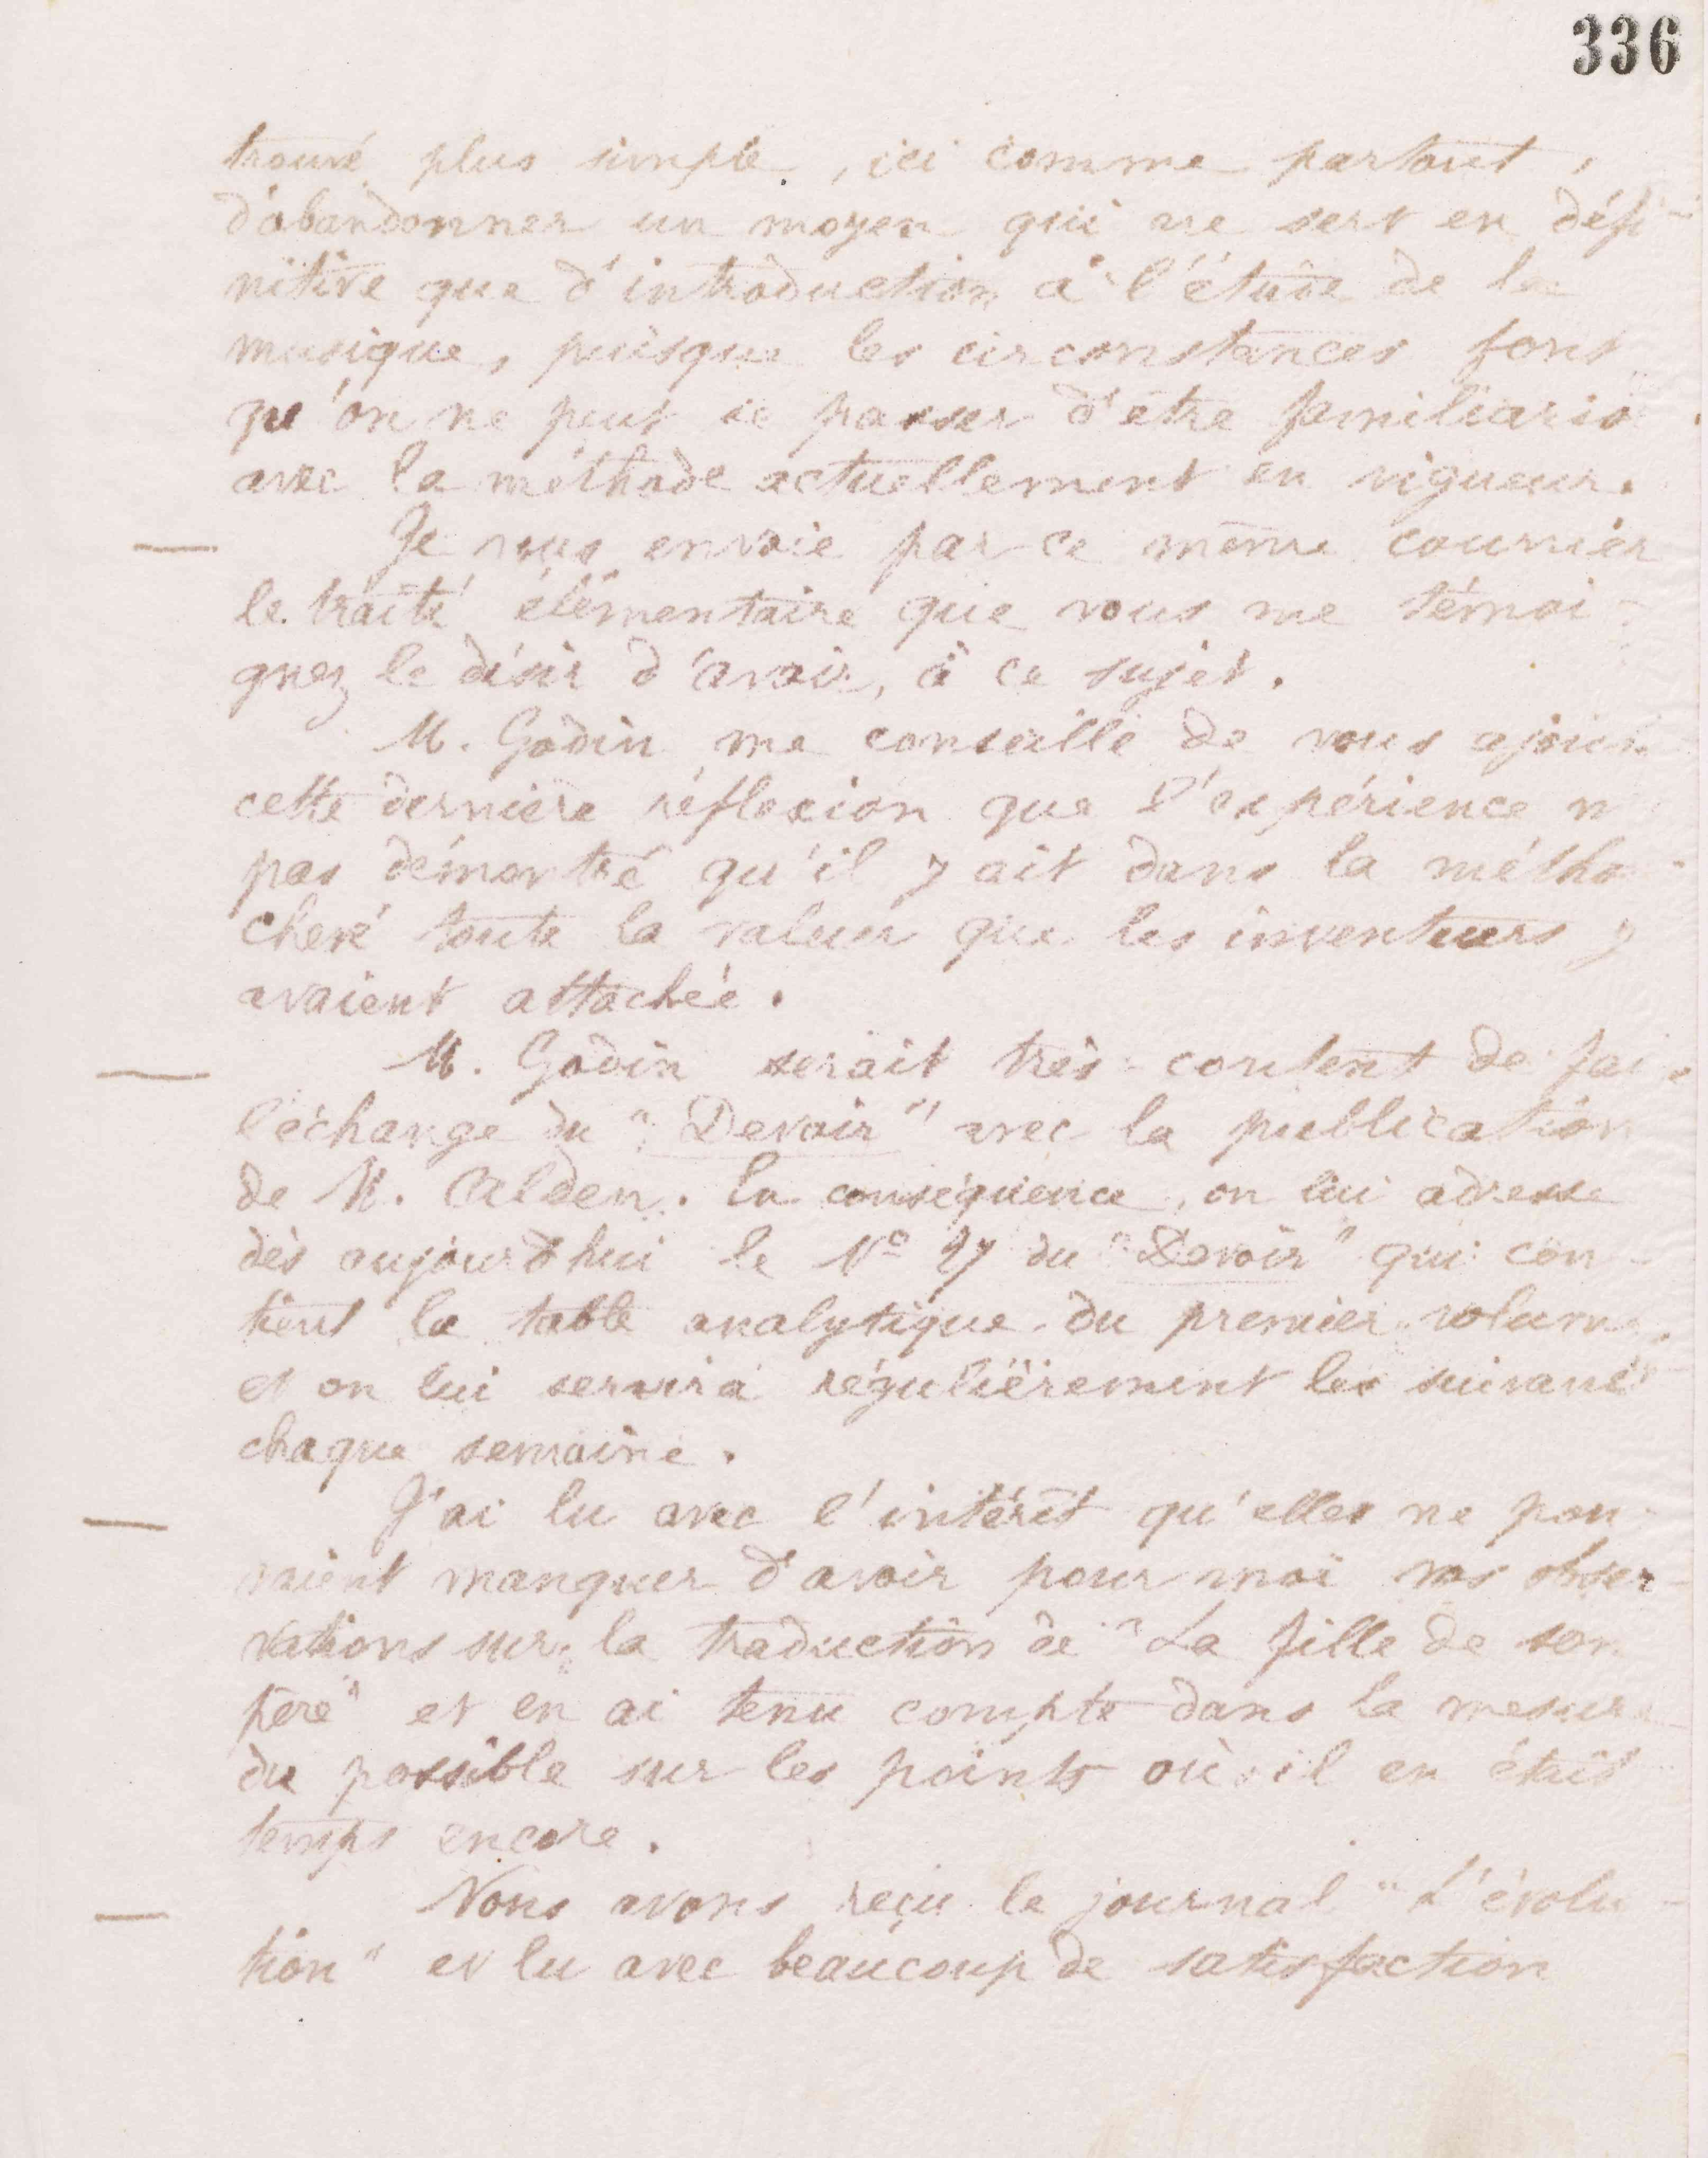 336
trouvé plus simple, ici comme partout,
d'abandonner un moyen qui ne sert en défi-
nitive que d'introduction à l'étude de la
musique, puisque les circonstances font
qu'on ne peut se passer d'être familiaris
avec la méthode actuellement en vigueur.
— Je vous envoie par ce même courrier
le traité élémentaire que vous me témoi-
gnez le désir d'avoir, à ce sujet.
M. Godin me conseille de vous ajou
cette dernière réflexion que l'expérience n
pas démontré qu'il y ait dans la métho-
chevé toute la valeur que les inventeurs y
avaient attachée.
— M. Godin serait très-content de fai
l'échange du "Devoir" avec la publication
de M. Alden. En conséquence, on lui adresse
dès aujourd'hui le Nº 27 du "Devoir" qui con-
tient la table analytique du premier volume,
et on lui servira régulièrement les suivants
chaque semaine.
— J'ai lu avec l'intérêt qu'elles ne pou-
vaient manquer d'avoir pour moi vos obser-
vations sur la traduction de "La fille de son
père" et en ai tenu compte dans la mesure
du possible sur les points où il en était
temps encore.
— Nous avons reçu le journal "L'évolu-
tion" et lu avec beaucoup de satisfaction